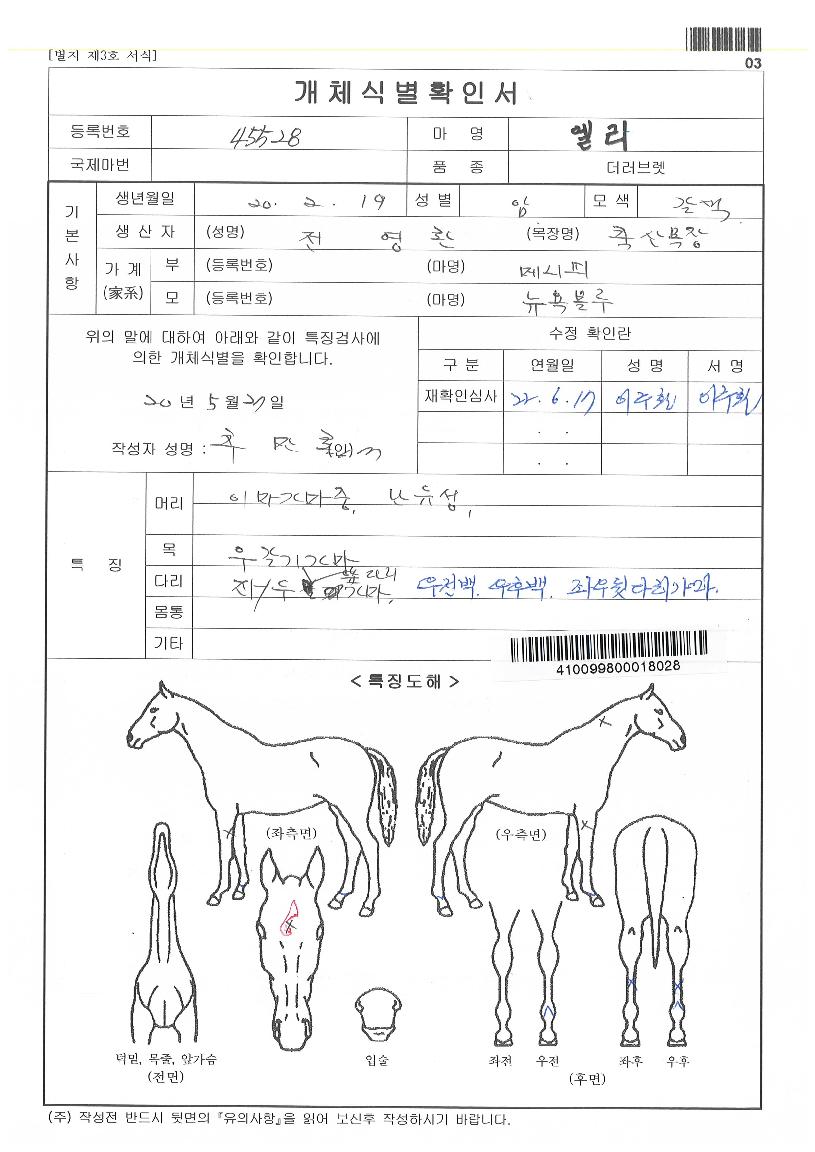 [별지 제3호 서식]
03
개체식별확인서
등록번호 45528 마 명 엘리
국제마번 품 종 더러브렛
기본사항
생년월일 20. 2. 19 성 별 암 모 색 갈색
생 산 자 (성명) 전 영 환 (목장명) 축산목장
가 계 (家系) 부 (등록번호) (마명) 메시피
모 (등록번호) (마명) 뉴욕블루
위의 말에 대하여 아래와 같이 특징검사에
의한 개체식별을 확인합니다.
20 년 5 월 27 일
작성자 성명 : (인)
수정 확인란
구 분 연월일 성 명 서 명
재확인심사 22. 6. 17 이주환 이주환
. .
. .
특 징
머리 이마가마중, 난유성,
목 우중기가마
다리 앞다리 우전백. 우후백. 좌우뒷다리가마.
몸통
기타
410099800018028
< 특징도해 >
(좌측면) (우측면)
턱밑, 목줄, 앞가슴
(전면)
입술
좌전 우전 좌후 우후
(후면)
(주) 작성전 반드시 뒷면의 『유의사항』을 읽어 보신후 작성하시기 바랍니다.